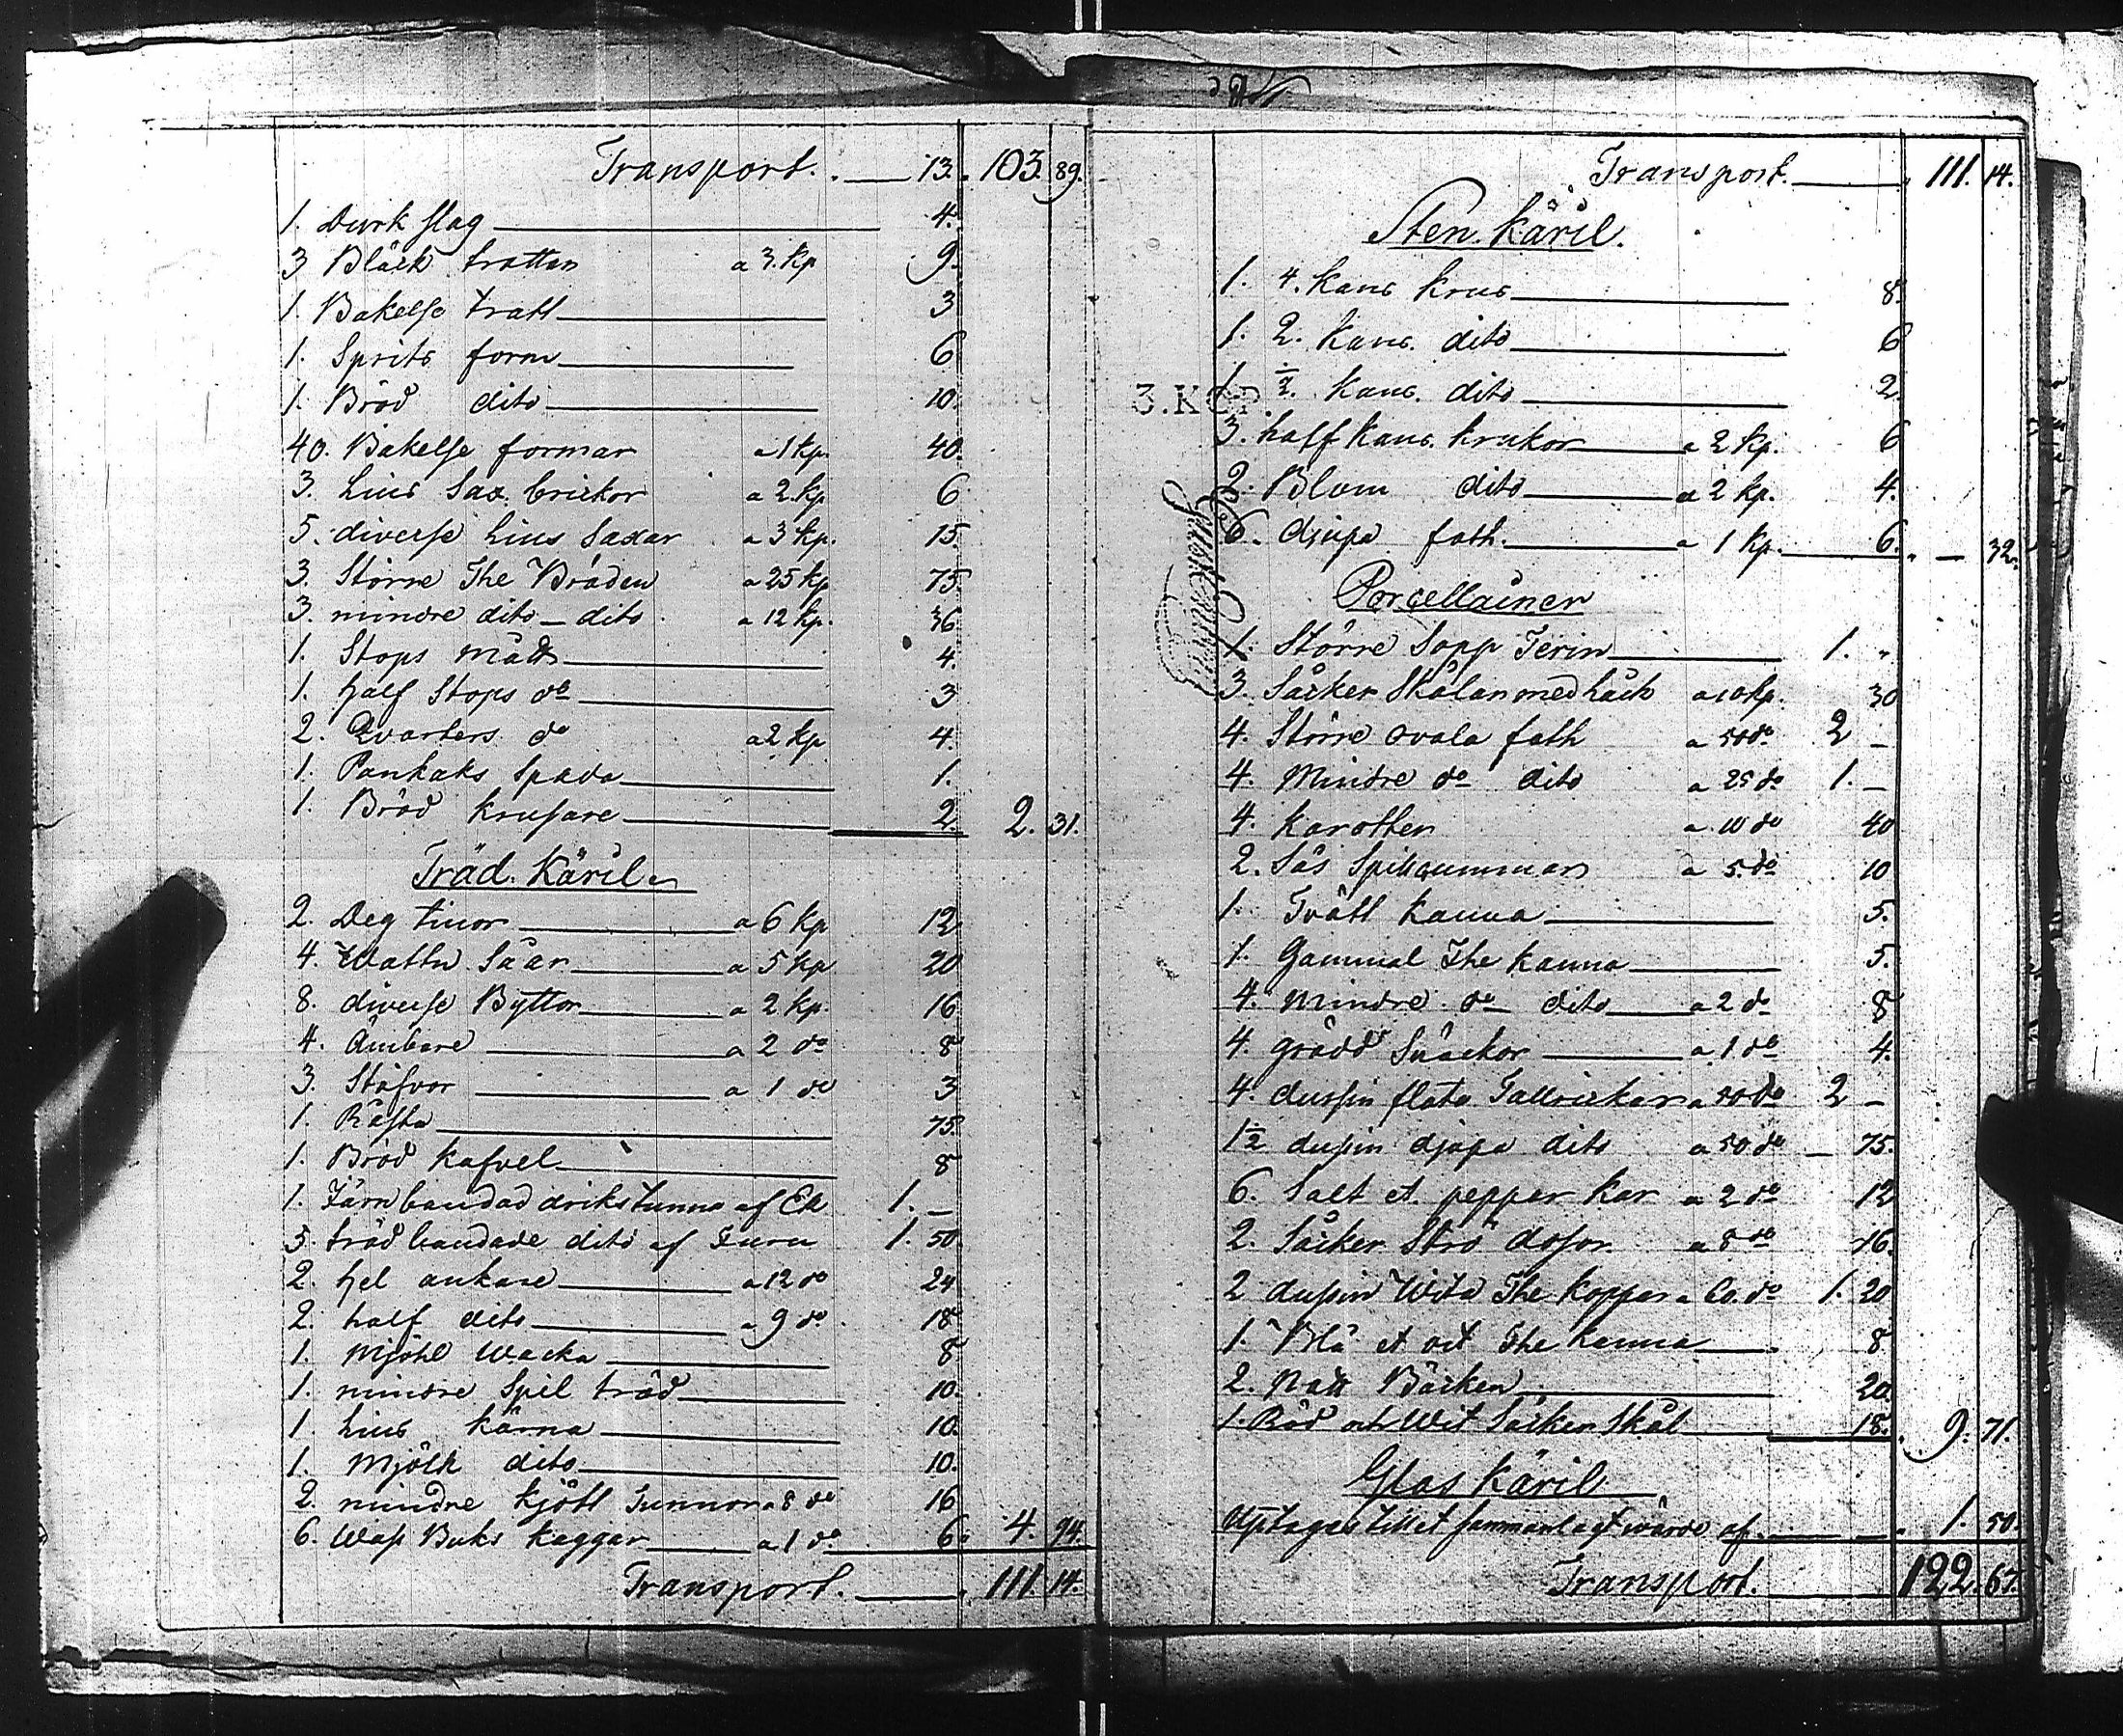 Transport. 13. 103. 89.
1. Durk slag 4.
3 Bläck trattar a 3. kp 9.
1. Bakelse tratt 3
1. Sprits form 6
1. Bröd dito 10.
40. Bakelse formar a 1 kp. 40.
3. Lius Sax brickor a 2. kp 6
5. diverse Lius Saxar a 3 kp. 15.
3. Större The Bräden a 25 kp 75.
3. mindre dito dito a 12 kp. 36
1. Stops mått 4.
1. half Stops do 3
2. Qvarters do a 2 kp 4.
1. Pankaks Spada 1.
1. Bröd krusare 2. 2. 31.
Träd. Käril.
2. Deg tinor a 6 kp 12
4. Wattn Såar a 5 kp 20
8. diverse Byttor a 2 kp. 16
4. Ämbare a 2 do 8
3. Stäfvor a 1 do 3
1. 75.
1. Bröd kafvel 8
1. Järn bandad drikstunna af Ek 1. –
3. träd bandade dito af Furu 1. 50.
2. hel ankare a 12 do 24
2. half dito a 9 do 18
1. Mjöhl Wacka 8
1. mindre Spil träd 10.
1. Lius kärna 10.
1. Mjölk dito 10.
2. mindre kjött Tunnor a 8 do 16
6. Kaggar a 1 do 6. 4. 94.
Transport. 111. 14.
Transport. 111. 14.
Sten. Käril.
1. 4. kans krus 8.
1. 2. kans. dito 6
1. ½. kans. dito 2
3. KOP
3. half kans. krukor a 2 kp. 6
2. Blom dito a 2 kp. 4.
6. djupa fath. a 1 kp. 6. – 32.
Porcellainer
1. Större Sopp Terin 1. "
3. Såcker Skålar med Låck a 10 kp. 30
4. Större ovala fath a 50 do 2 –
4. Mindre do dito a 25 do 1. –
4. karotter a 10 do 40
2. Sås Spillkummar a 5. do 10
1. Tvätt kanna 5.
1. Gammal The kanna 5.
4. mindre do dito a 2 do 8
4. grädd Snäckor a 1 do 4.
4. dussin flata Tallrickar a 50 do 2 –
1½ dussin djupa dito a 50. do 75.
6. Salt et. peppar kar a 2 do 12
2. Såcker Strö dosor a 8 do 16.
2 dussin Wita The koppar a 60. do 1. 20
1. Blå et vit The kanna 8
2. Natt Bäcken 20.
1. Röd och Wit Såcker Skål 18. 9. 71.
Glas Käril
Uptages till et sammanlagt wärde af. 1. 50.
Transport. 122. 67.